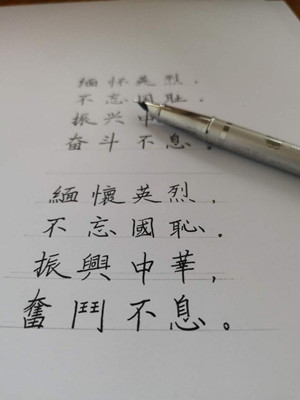 缅怀英烈，
不忘国耻。
振兴中
奋斗不息。
緬懷英烈，
不忘國恥。
振興中華，
奮鬥不息。